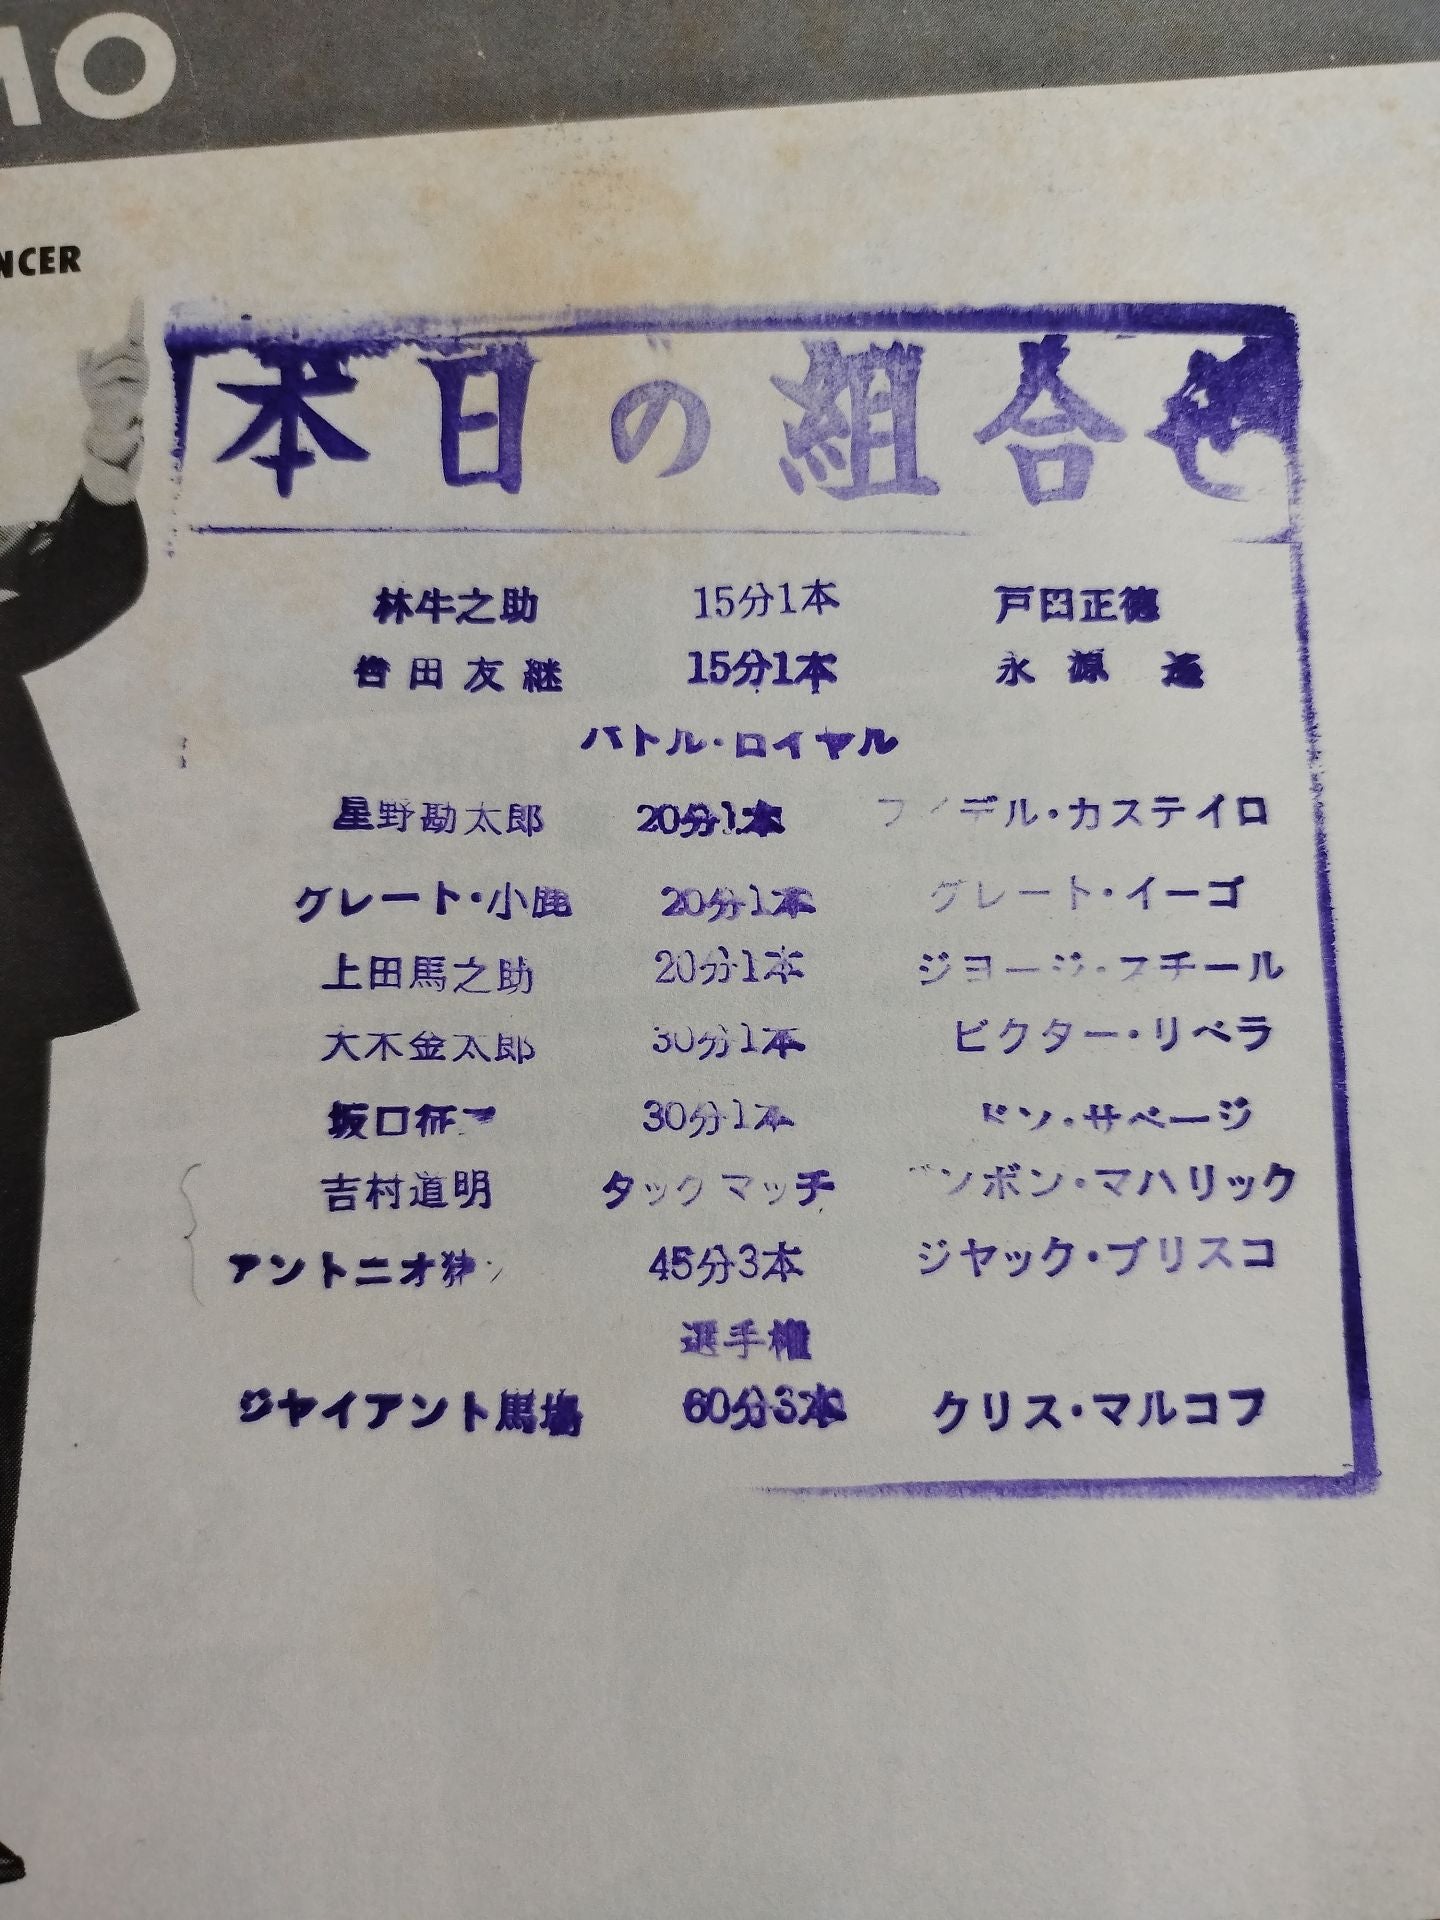 MO
NCER
本日の組合せ
林牛之助 15分1本 戸田正徳
吉田友継 15分1本 永源遥
バトル・ロイヤル
星野勘太郎 20分1本 フィデル・カステイロ
グレート・小鹿 20分1本 グレート・イーゴ
上田馬之助 20分1本 ジヨージ・スチール
大木金太郎 30分1本 ビクター・リベラ
坂口征二 30分1本 ドン・サベージ
吉村道明 タックマッチ ボンボン・マハリック
アントニオ猪 45分3本 ジヤック・ブリスコ
選手権
ジヤイアント馬場 60分3本 クリス・マルコフ